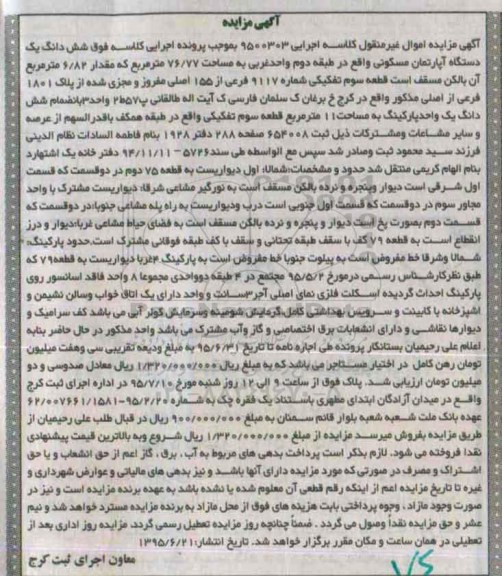 آگهی مزایده
آگهی مزایده اموال غیرمنقول کلاسه اجرایی ۹۵۰۰۳۰۳ بموجب پرونده اجرایی کلاسه فوق شش دانگ یک
دستگاه آپارتمان مسکونی واقع در طبقه دوم واحدغربی به مساحت ۷۶/۷۷ مترمربع که مقدار ۶/۸۲ مترمربع
آن بالکن مسقف است قطعه سوم تفکیکی شماره ۹۱۱۷ فرعی از ۱۵۵ اصلی مفروز و مجزی شده از پلاک ۱۸۰۱
فرعی از اصلی مذکور واقع در کرج خ برغان ک سلمان فارسی ک آیت اله طالقانی پ۵۷ط۲ واحد۳بانضمام شش
دانگ یک واحدپارکینگ به مساحت۱۱ مترمربع قطعه سوم تفکیکی واقع در طبقه همکف باقدرالسهم از عرصه
و سایر مشاعات ومشترکات ذیل ثبت ۶۵۴۰۰۸ صفحه ۲۸۸ دفتر ۱۹۲۸ بنام فاطمه السادات نظام الدینی
فرزند سید محمود ثبت وصادر شد سپس مع الواسطه طی سند۵۷۲۶-۹۴/۱۱/۱۱ دفتر خانه یک اشتهارد
بنام الهام کریمی منتقل شد حدود و مشخصات:شمالا: اول دیواریست به قطعه ۷۵ دوم در دوقسمت که قسمت
اول شرقی است دیوار وپنجره و نرده بالکن مسقف است به نورگیر مشاعی شرقا: دیواریست مشترک با واحد
مجاور سوم در دوقسمت که قسمت اول جنوبی است درب ودیواریست به راه پله مشاعی جنوبا:در دوقسمت که
قسمت دوم بصورت پخ است دیوار و پنجره و نرده بالکن مسقف است به فضای حیاط مشاعی غربا:دیوار و درز
انقطاع است به قطعه ۷۹ کف با سقف طبقه تحتانی و سقف با کف طبقه فوقانی مشترک است.حدود پارکینگ:
شمالا وشرقا خط مفروض است به پیلوت جنوبا خط مفروض است به پارکینگ ۴غربا دیواریست به قطعه۷۹ که
طبق نظرکارشناس رسمی درمورخ ۹۵/۵/۲ مجتمع در ۴ طبقه دوواحدی مجموعا ۸ واحد فاقد اسانسور روی
پارکینگ احداث گردیده اسکلت فلزی نمای اصلی آجر۳سانت و واحد دارای یک اتاق خواب وسالن نشیمن و
اشپزخانه با کابینت و سرویس بهداشتی کامل،گرمایش شومینه وسرمایش کولر آبی می باشد کف سرامیک و
دیوارها نقاشی و دارای انشعابات برق اختصاصی و گاز وآب مشترک می باشد واحد مذکور در حال حاضر بنابه
اعلام علی رحیمیان بستانکار پرونده طی اجاره نامه تا تاریخ ۹۵/۶/۳۱ به مبلغ ودیعه تقریبی سی وهفت میلیون
تومان رهن کامل در اختیار مستاجر می باشد که به مبلغ ریال ۱/۳۲۰/۰۰۰/۰۰۰ ریال معادل صدوسی و دو
میلیون تومان ارزیابی شد. پلاک فوق از ساعت ۹ الی ۱۲ روز شنبه مورخ ۹۵/۷/۱۰ در اداره اجرای ثبت کرج
واقع در میدان آزادگان ابتدای مطهری باستناد یک فقره چک به شماره ۹۵/۲/۲۰-۶۲/۰۰۷۶۶۱/۱۵۸۱
عهده بانک ملت شعبه شعبه بلوار قائم سمنان به مبلغ ۹۰۰/۰۰۰/۰۰۰ ریال در قبال طلب علی رحیمیان از
طریق مزایده بفروش میرسد مزایده از مبلغ ۱/۳۲۰/۰۰۰/۰۰۰ ریال شروع وبه بالاترین قیمت پیشنهادی
نقدا فروخته می شود. لازم بذکر است پرداخت بدهی های مربوط به آب ، برق ، گاز اعم از حق انشعاب و یا حق
اشتراک و مصرف در صورتی که مورد مزایده دارای آنها باشد و نیز بدهی های مالیاتی و عوارض شهرداری و
غیره تا تاریخ مزایده اعم از اینکه رقم قطعی آن معلوم شده یا نشده باشد به عهده برنده مزایده است و نیز در
صورت وجود مازاد ، وجوه پرداختی بابت هزینه های فوق از محل مازاد به برنده مزایده مسترد خواهد شد و نیم
عشر و حق مزایده نقداً وصول می گردد . ضمناً چنانچه روز مزایده تعطیل رسمی گردد، مزایده روز اداری بعد از
تعطیلی در همان ساعت و مکان مقرر برگزار خواهد شد. تاریخ انتشار:۱۳۹۵/۶/۲۱
معاون اجرای ثبت کرج